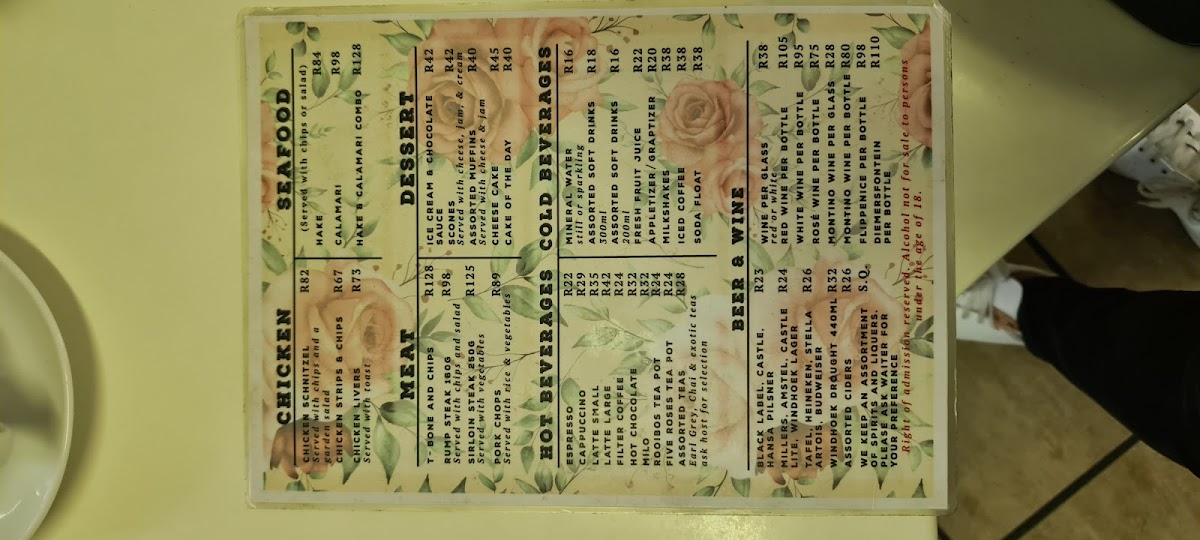 CHICKEN
CHICKEN SCHNITZEL R82
Served with chips and a
garden salad
CHICKEN STRIPS & CHIPS R67
CHICKEN LIVERS R73
Served with toast
SEAFOOD
(Served with chips or salad)
HAKE R84
CALAMARI R98
HAKE & CALAMARI COMBO R128
MEAT
T-BONE AND CHIPS R128
RUMP STEAK 180G R98
Served with chips and salad
SIRLOIN STEAK 250G R125
Served with vegetables
PORK CHOPS R89
Served with rice & vegetables
DESSERT
ICE CREAM & CHOCOLATE R42
SAUCE
SCONES R42
Served with cheese, jam, & cream
ASSORTED MUFFINS R40
Served with cheese & jam
CHEESE CAKE R45
CAKE OF THE DAY R40
HOT BEVERAGES
ESPRESSO R22
CAPPUCCINO R29
LATTE SMALL R35
LATTE LARGE R42
FILTER COFFEE R24
HOT CHOCOLATE R32
MILO R32
ROOIBOS TEA POT R24
FIVE ROSES TEA POT R24
ASSORTED TEAS R28
Earl Grey, Chai & exotic teas
ask host for selection
COLD BEVERAGES
MINERAL WATER R16
still or sparkling
ASSORTED SOFT DRINKS R18
300ml
ASSORTED SOFT DRINKS R16
200ml
FRESH FRUIT JUICE R22
APPLETIZER/GRAPTIZER R20
MILKSHAKES R38
ICED COFFEE R38
SODA FLOAT R38
BEER & WINE
BLACK LABEL, CASTLE, R23
HANSA PILSNER
MILLERS, AMSTEL, CASTLE R24
LITE, WINDHOEK LAGER
TAFEL, HEINEKEN, STELLA R26
ARTOIS, BUDWEISER
WINDHOEK DROUGHT 440ML R32
ASSORTED CIDERS R26
WE KEEP AN ASSORTMENT S.Q.
OF SPIRITS AND LIQUERS.
PLEASE ASK WAITER FOR
YOUR PREFERENCE
WINE PER GLASS R38
red or white
RED WINE PER BOTTLE R105
WHITE WINE PER BOTTLE R95
ROSÉ WINE PER BOTTLE R75
MONTINO WINE PER GLASS R28
MONTINO WINE PER BOTTLE R80
FLIPPENICE PER BOTTLE R98
DIEMERSFONTEIN R110
PER BOTTLE
Right of admission reserved. Alcohol not for sale to persons
under the age of 18.